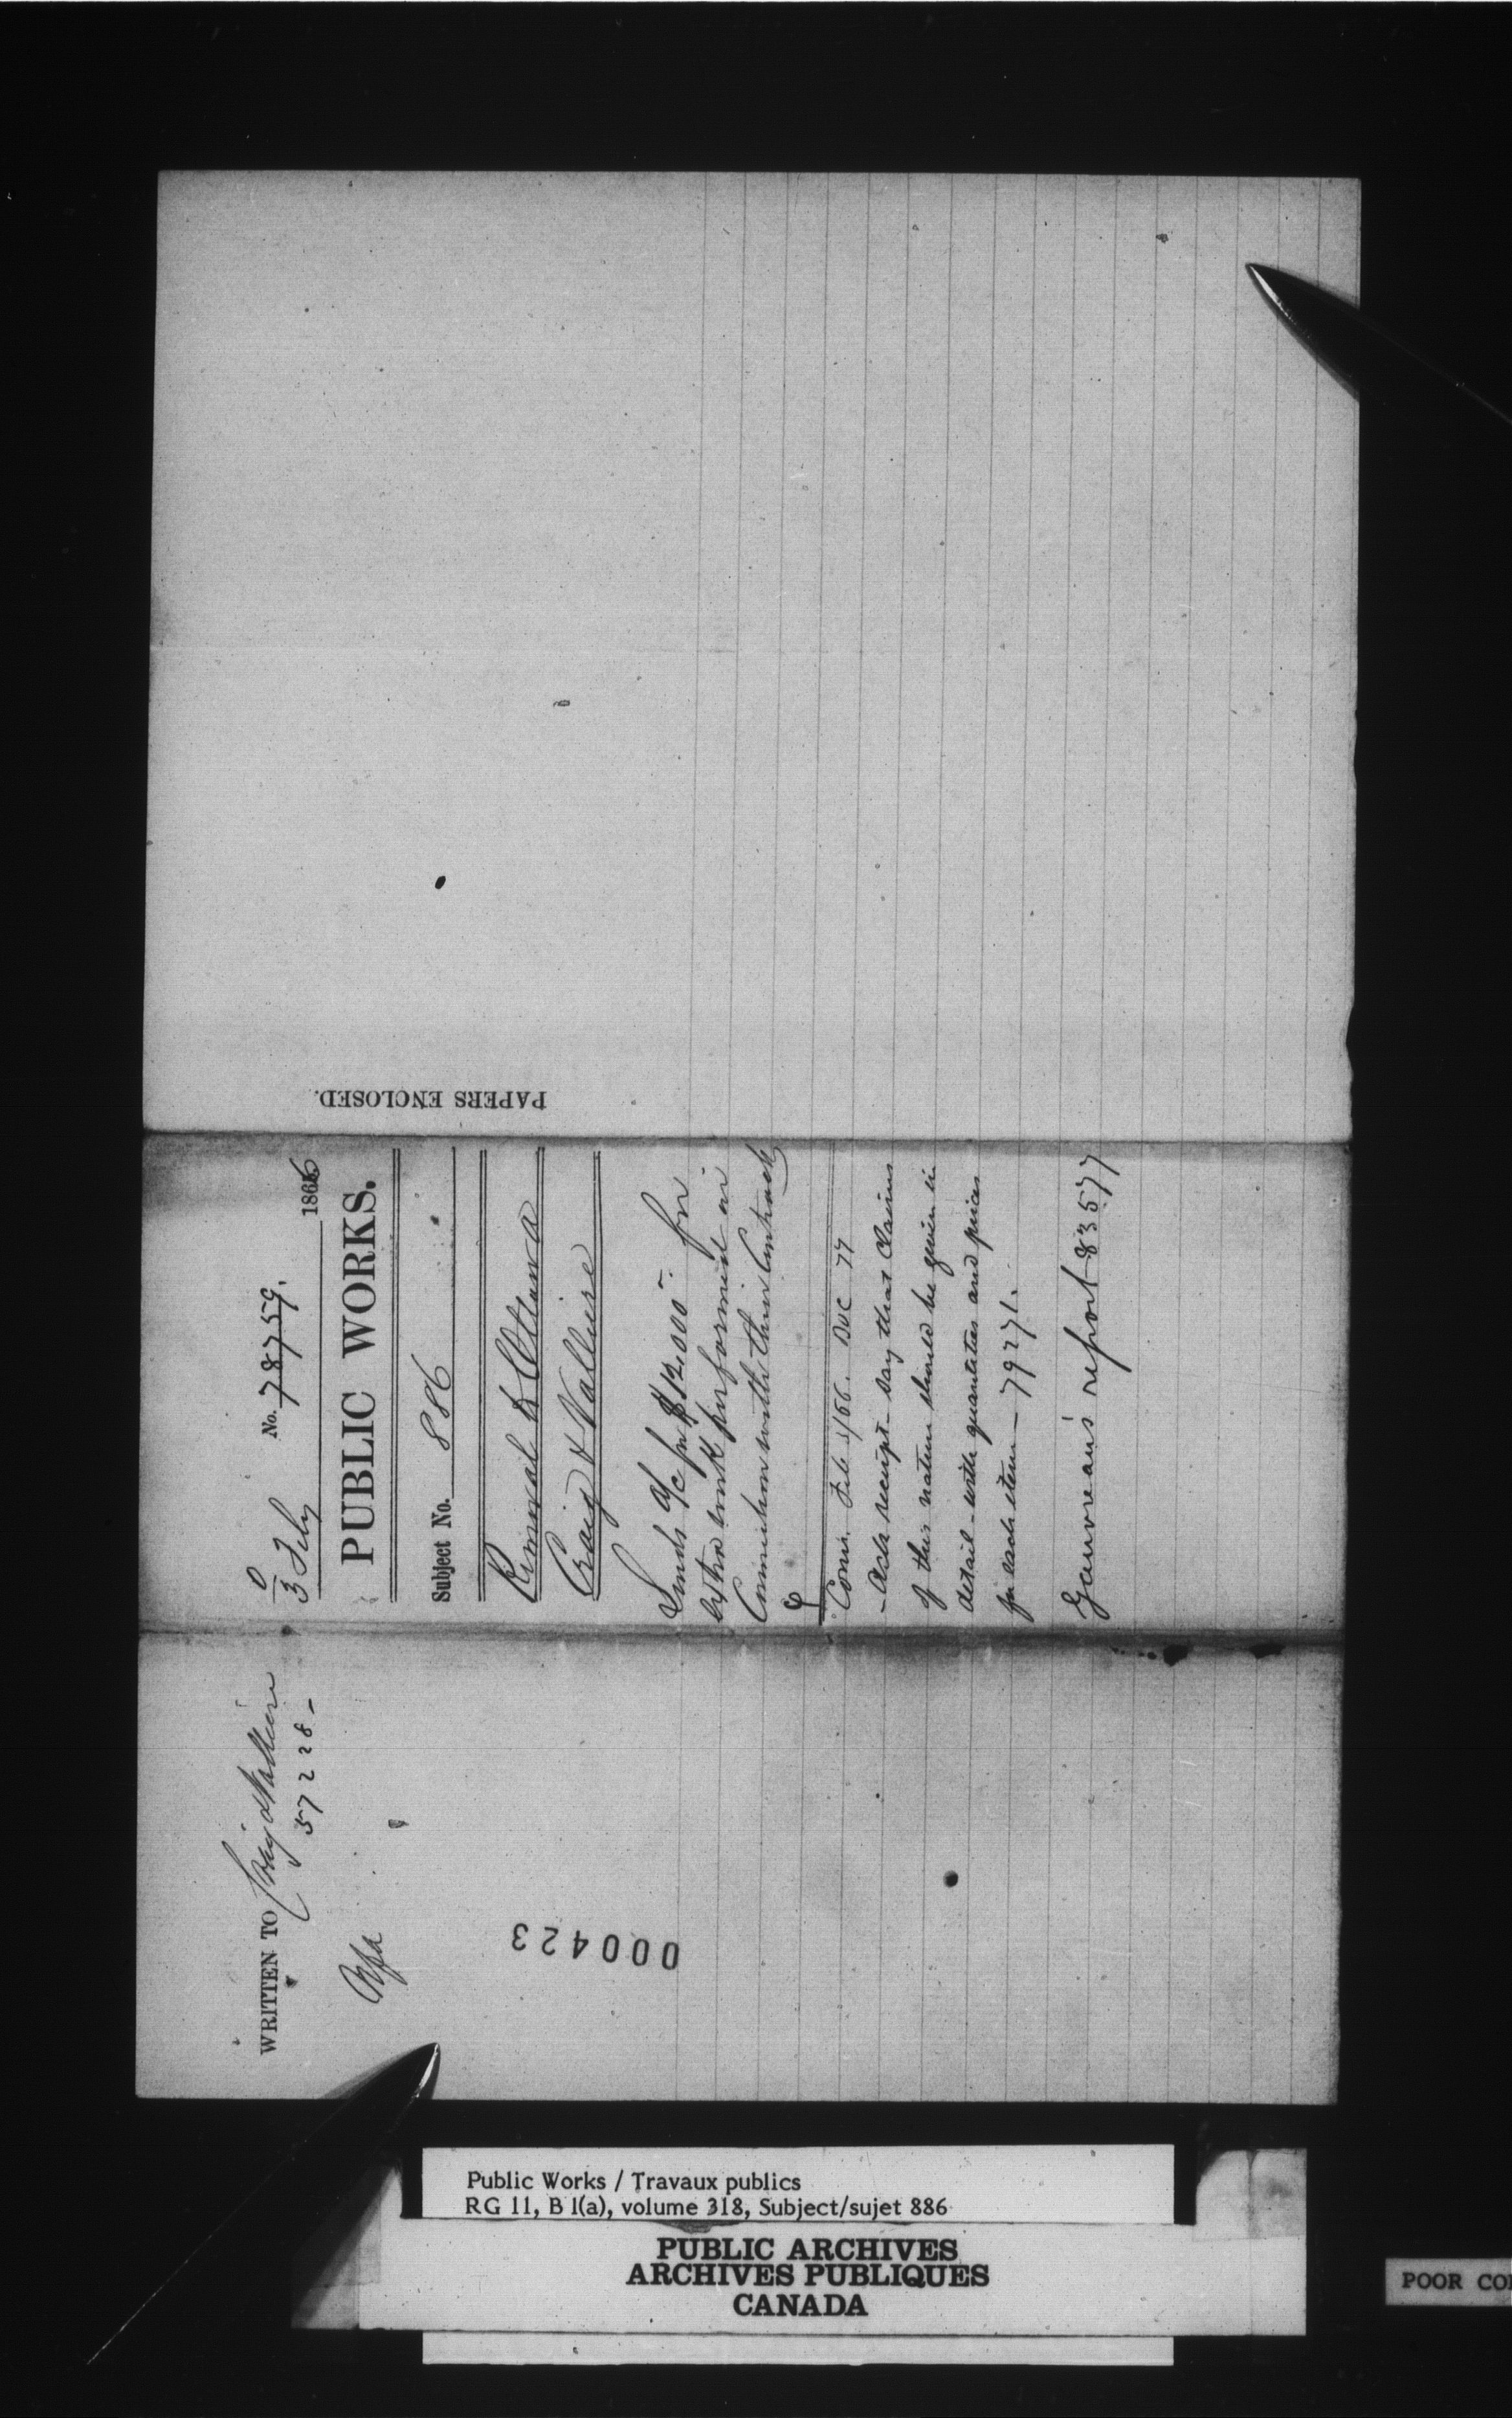 WRITTEN TO Craig & Vallière
57228 -
000423
No. 78759.
3 Feby 1866
PUBLIC WORKS.
Subject No. 886
Removal to Ottawa
Craig & Vallière
Sends a/c for $12,000 - for
extra work performed in
Connection with their Contract
Comr. Feb 5/66. BUC 77
- Ack receipt - say that claims
of this nature should be given in
detail - with quantities and prices
for each item - 79271.
Gauvreau's report 83577
PAPERS ENCLOSED.
Public Works / Travaux publics
RG 11, B 1(a), volume 318, Subject/sujet 886
PUBLIC ARCHIVES
ARCHIVES PUBLIQUES
CANADA
POOR